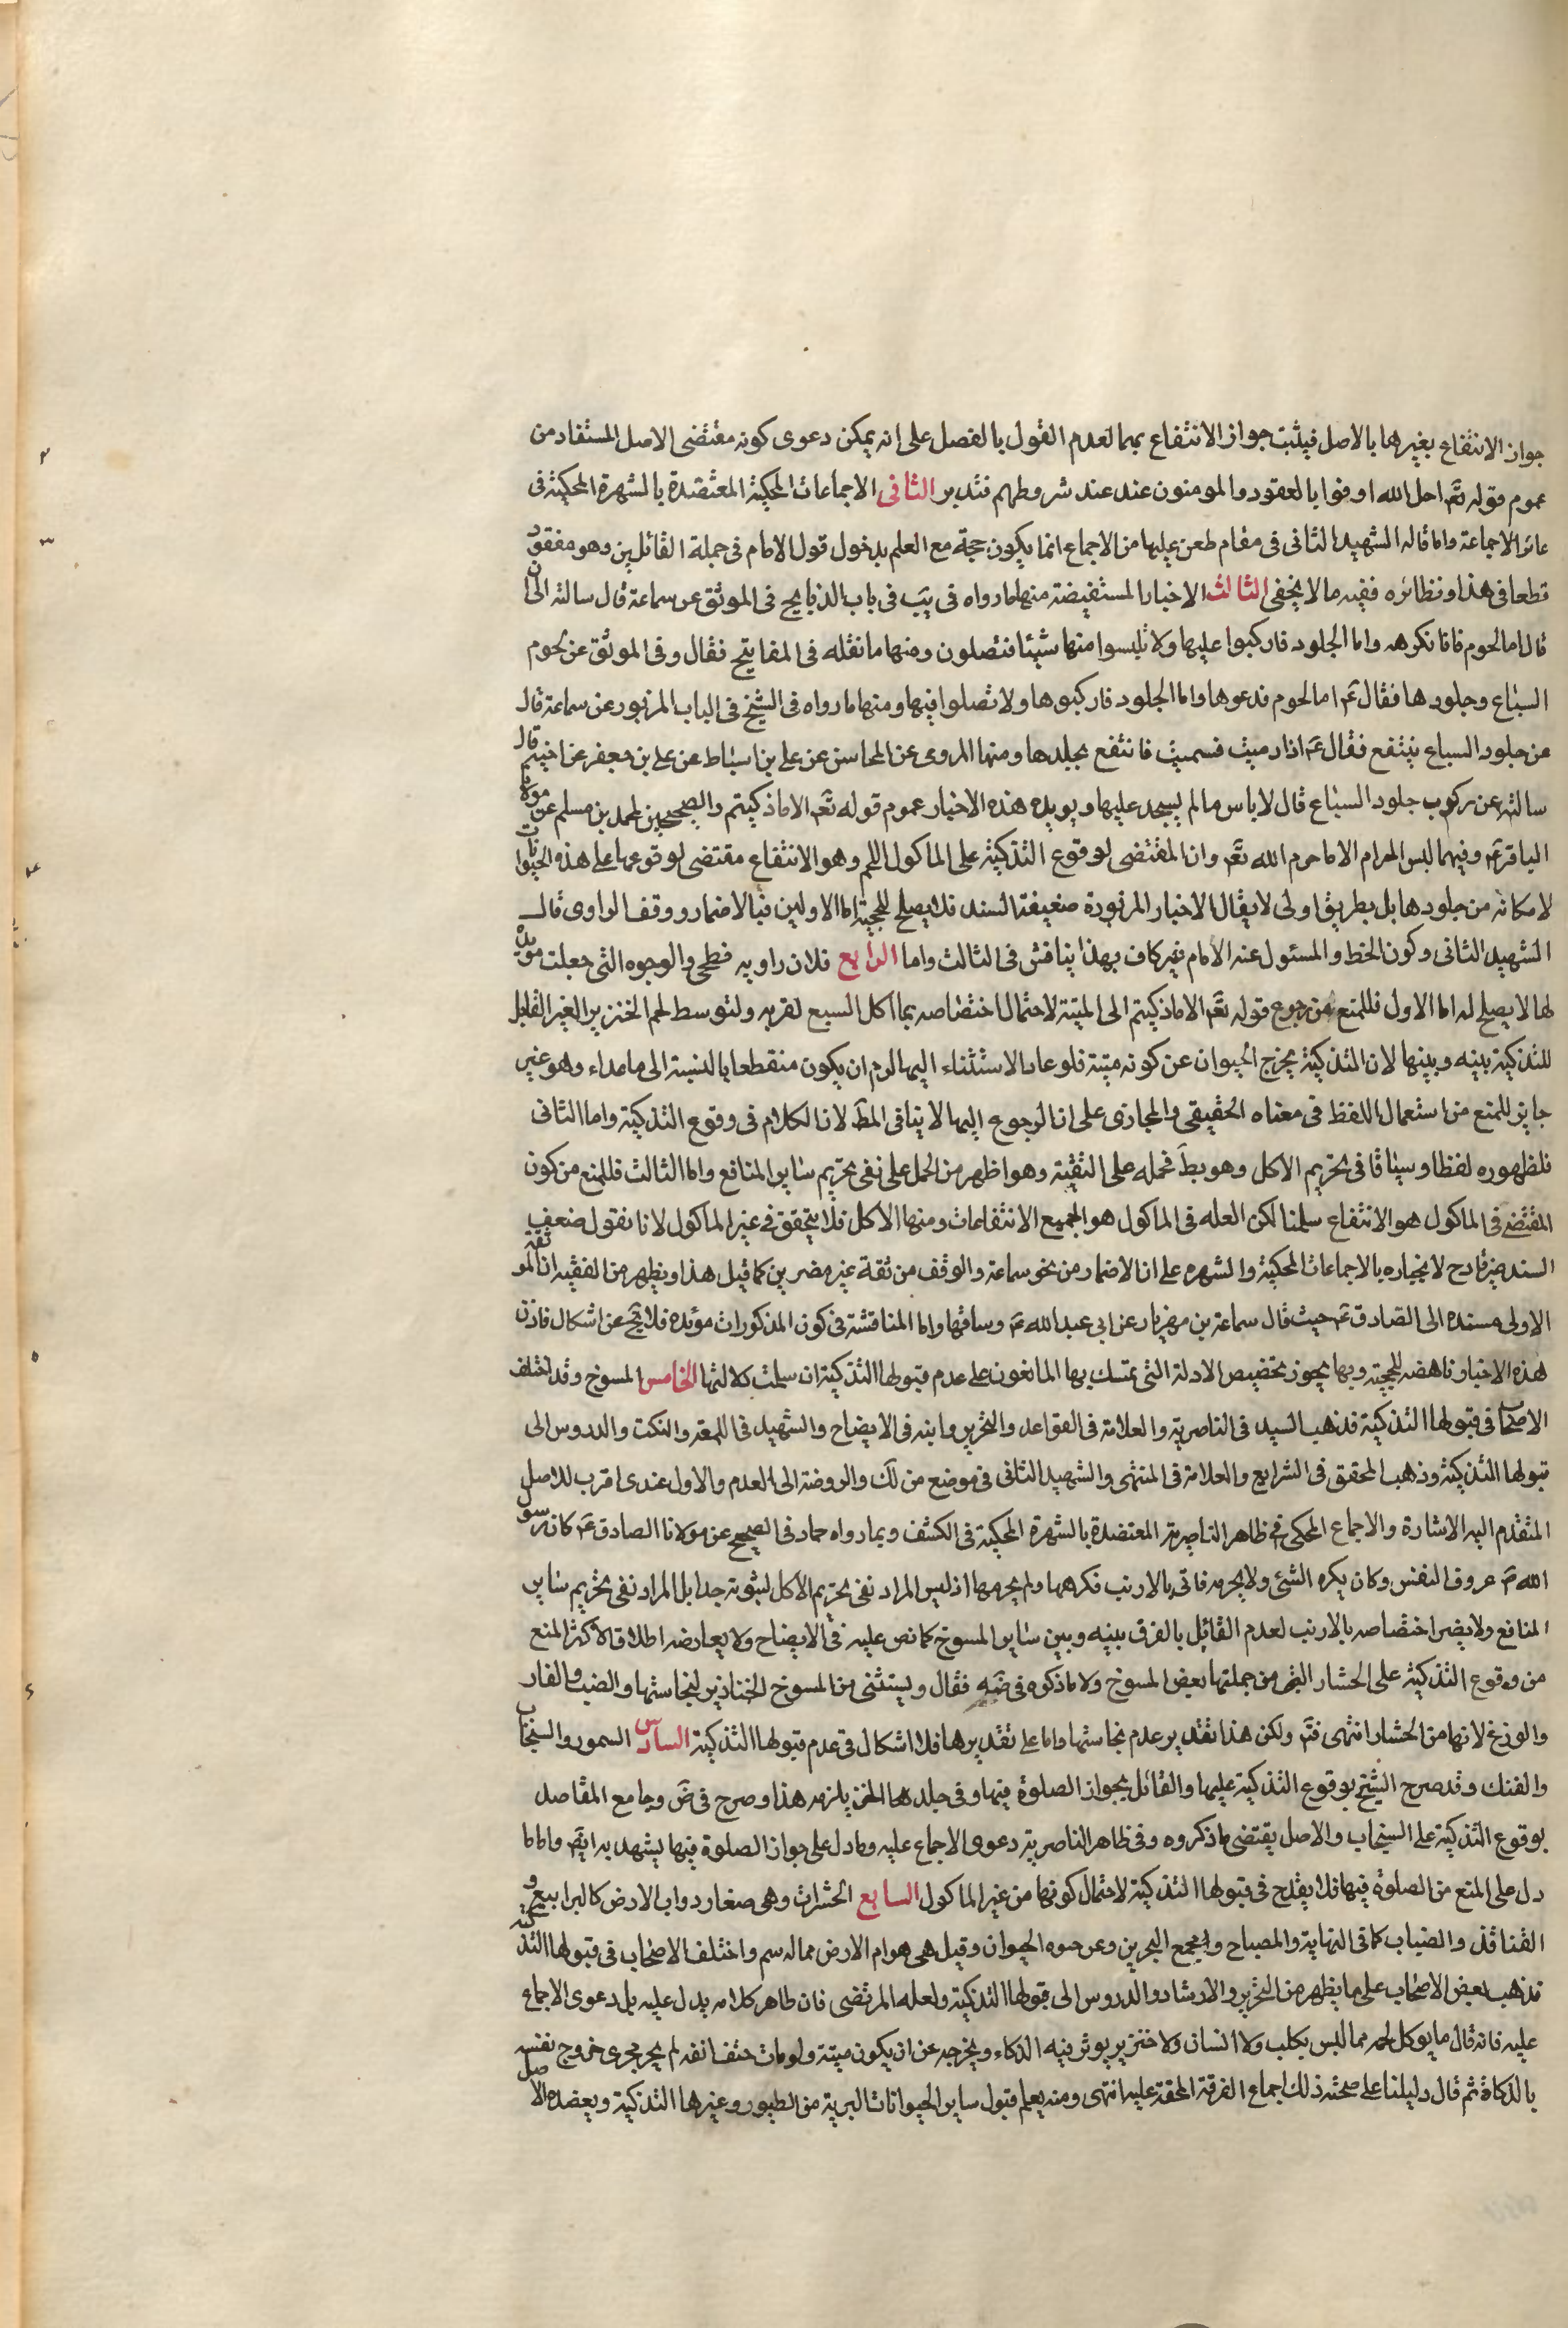 جواز الانتفاع بغيرهما بالاصل فيثبت جواز الانتفاع بهما لعدم القول بالفصل على انه يمكن دعوى كونه مقتضى الاصل المستفاد من
عموم قوله تعَ احل الله اوفوا بالعقود والمومنون عند عند شروطهم فتدبر الثانى الاجماعات المحكية المعتضدة بالشهرة المحكية فى
الاجماعة واما قاله الشهيد الثانى فى مقام طعن عليها من الاجماع انما يكون حجة مع العلم بدخول قول الامام فى جملة القائلين وهو مفقود
قطعا فى هذا ونظائره ففيه ما لا يخفى الثالث الاخبار المستفيضة منها ما رواه فى يَب فى باب الذبايح فى الموثق عن سماعة قال سالته الى ان
قال اما لحوم فانا نكرهه واما الجلود فاركبوا عليها ولا تلبسوا منها شيئا فتصلون ومنها ما نقله فى المفاتيح فقال وفى الموثق عن لحوم
السباع وجلودها فقال عَ اما لحوم فدعوها واما الجلود فاركبوها ولا تصلوا فيها ومنها ما رواه فى الشيخ فى الباب المزبور عن سماعة قال
عن جلود السباع ينتفع فقال عَ اذا رميت فسميت فانتفع بجلدها ومنها المروى عن المحاسن عن على بن اسباط عن على بن جعفر عن اخيه قال
سالته عن ركوب جلود السباع قال لا باس ما لم يسجد عليها ويويده هذه الاخبار عموم قوله تعَ الا ما ذكيتم والصحيحين لمحمد بن مسلم عن مولانا
الباقر عَ وفيهما ليس الحرام الا ما حرم الله تعَ وان المقتضى لوقوع التذكية على الماكول اللحم وهو الانتفاع مقتضى لوقوعها على هذه الحيوانات
لامكانه من جلودها بل بطريق اولى لا يقال الاخبار المزبورة ضعيفة السند فلا يصلح للحجية اما الاولين فبالاضمار ووقف الراوى قال
الشهيد الثانى وكون الخط والمسئول عنه الامام غير كاف بهذا يناقش فى الثالث واما الرابع فلان راويه فطحى والوجوه التى جعلت مويدة
لها لا يصلح له اما الاول فللمنع من رجوع قوله تعَ الا ما ذكيتم الى الميتة لاحتمال اختصاصه بما اكل السبع لقربه ولتوسط لحم الخنزير الغير القابل
للتذكية بينه وبينها لان التذكية يخرج الحيوان عن كونه ميتة فلو عاد الاستثناء اليها لزم ان يكون منقطعا بالنسبة الى ما عداه وهو غير
جايز للمنع من استعمال اللفظ فى معناه الحقيقى والمجازى على ان الرجوع اليها لا ينافى المطَ لان الكلام فى وقوع التذكية واما الثانى
فلظهوره لفظا وسياقا فى تحريم الاكل وهو بطَ فحمله على التقية وهو اظهر من الحمل على نفى تحريم سائر المنافع واما الثالث فللمنع من كون
المقتضى فى الماكول هو الانتفاع سلمنا لكن العله فى الماكول هو الجميع الانتفاعات ومنها الاكل فلا يتحقق فى غير الماكول لانا نقول ضعف
السند غير قادح لانجباره بالاجماعات المحكية والشهره على ان الاضمار من نحو سماعة والوقف من ثقة غير مضرين كما قيل هذا ويظهر من الفقيه ان الموثقة
الاولى مسنده الى الصادق عَ حيث قال سماعة بن مهران عن ابى عبد الله عَ وساقها واما المناقشة فى كون المذكورات مؤيده فلا يخَ عن اشكال فاذن
هذه الاخبار ناهضه للحجية وبها يجوز تخصيص الادلة التى تمسك بها المانعون على عدم قبولها التذكية ان سلمت دلالتها الخامس المسوخ وقد اختلف
الاصحاب فى قبولها التذكية فذهب السيد فى الناصرية والعلامة فى القواعد والتحرير وابنه فى الايضاح والشهيد فى اللمعة والنكت والدروس الى
قبولها التذكية وذهب المحقق فى الشرايع والعلامة فى المنتهى والشهيد الثانى فى موضع من لك والروضة الى العدم والاول عندى اقرب للاصل
المتقدم اليه الاشارة والاجماع المحكى فى ظاهر الناصرية المعتضدة بالشهرة المحكية فى الكشف وبما رواه حماد فى الصحيح عن مولانا الصادق عَ كان رسول
الله صَ عزوف النفس وكان يكره الشئ ولا يحرمه فاتى بالارنب فكرهها ولم يحرمها اذ ليس المراد نفى تحريم الاكل لثبوته جدا بل المراد نفى تحريم سائر
المنافع ولا يضر اختصاصه بالارنب لعدم القائل بالفرق بينه وبين سائر المسوخ كما نص عليه فى الايضاح ولا يعارضه اطلاق الاكثر المنع
من وقوع التذكية على الحشار التى من جملتها بعض المسوخ ولا ما ذكره فى ضَه فقال ويستثنى من المسوخ الخنازير لنجاستها والضب والفار
والوزغ لانها من الحشار انتهى فتَم ولكن هذا بتقدير عدم نجاستها واما على تقديرها فلا اشكال فى عدم قبولها التذكية السادس السمور والسنجاب
والفنك وقد صرح الشيخ بوقوع التذكية عليها والقائل بجواز الصلوة فيها وفى جلد الخز يلزمه هذا وصرح فى ضَ وجامع المقاصد
بوقوع التذكية على السنجاب والاصل يقتضى ما ذكروه وفى ظاهر الناصرية دعوى الاجماع عليه وما دل على جواز الصلوة فيها يشهد به ايضَ واما ما
دل على المنع من الصلوة فيها فلا يقدح فى قبولها التذكية لاحتمال كونها من غير الماكول السابع الحشرات وهى صغار دواب الارض كاليرابيع و
القنافذ والضباب كما فى النهاية والمصباح والمجمع البحرين وعن حيوه الحيوان وقيل هى هوام الارض مما له سم واختلف الاصحاب فى قبولها التذكية
فذهب بعض الاصحاب على ما يظهر من التحرير والارشاد والدروس الى قبولها التذكية ولعله المرتضى فان ظاهر كلامه يدل عليه بل دعوى الاجماع
عليه فانه قال ما يوكل لحمه مما ليس بكلب ولا انسان ولا خنزير يوثر فيه الذكاء ويخرجه عن ان يكون ميتة ولو مات حتف انفه لم يجر مجرى خروج نفسه
بالذكاة ثم قال دليلنا على صحته ذلك اجماع الفرقة المحقة عليه انتهى ومنه يعلم قبول ساير الحيوانات البرية من الطيور وغيرها التذكية ويعضده الاصل